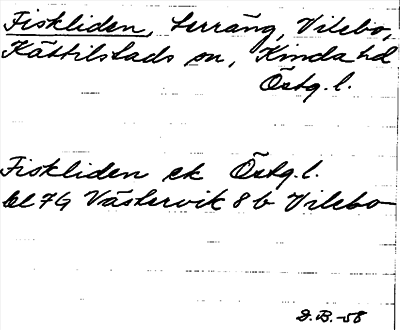 Fiskliden, Serräng, Vilebo,
Kättilstads sn, Kinda hd
Östg. l.
Fiskliden ek Östg. l.
bl 7G Västervik 8 b Vilebo
D.B.-58